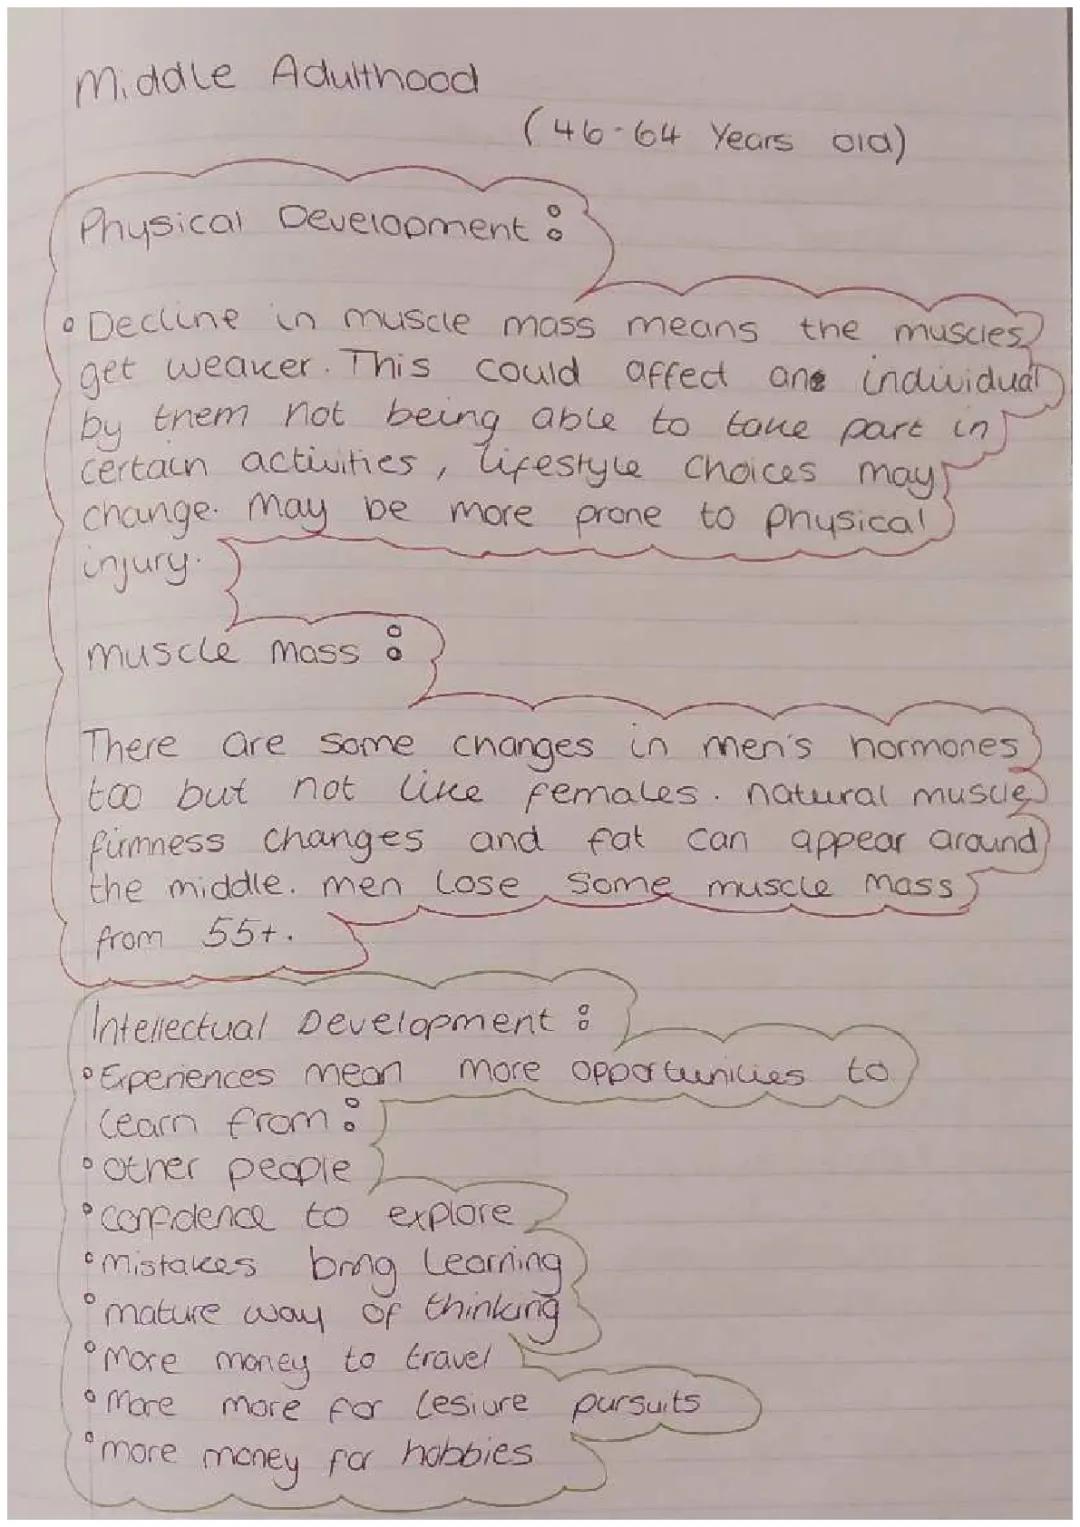 Middle Adulthood
(46-64 Years old)
Physical Development:
• Decline in muscle mass means the muscles
get weaker. This could affect ane individual
by them not being able to take part in
certain activities, lifestyle choices may
change. May be more prone to physical
injury.
muscle mass:
There are some changes in men's hormones
too but not like females. natural muscle
firmness changes and fat can appear around
the middle. men lose some muscle mass
from 55+.
Intellectual Development:
• Experiences mean more opportunities to
learn from:
• other people
• confidence to explore
• mistakes bring learning
• mature way of thinking
• more money to travel
• More more for lesiure pursuits
• more money for hobbies